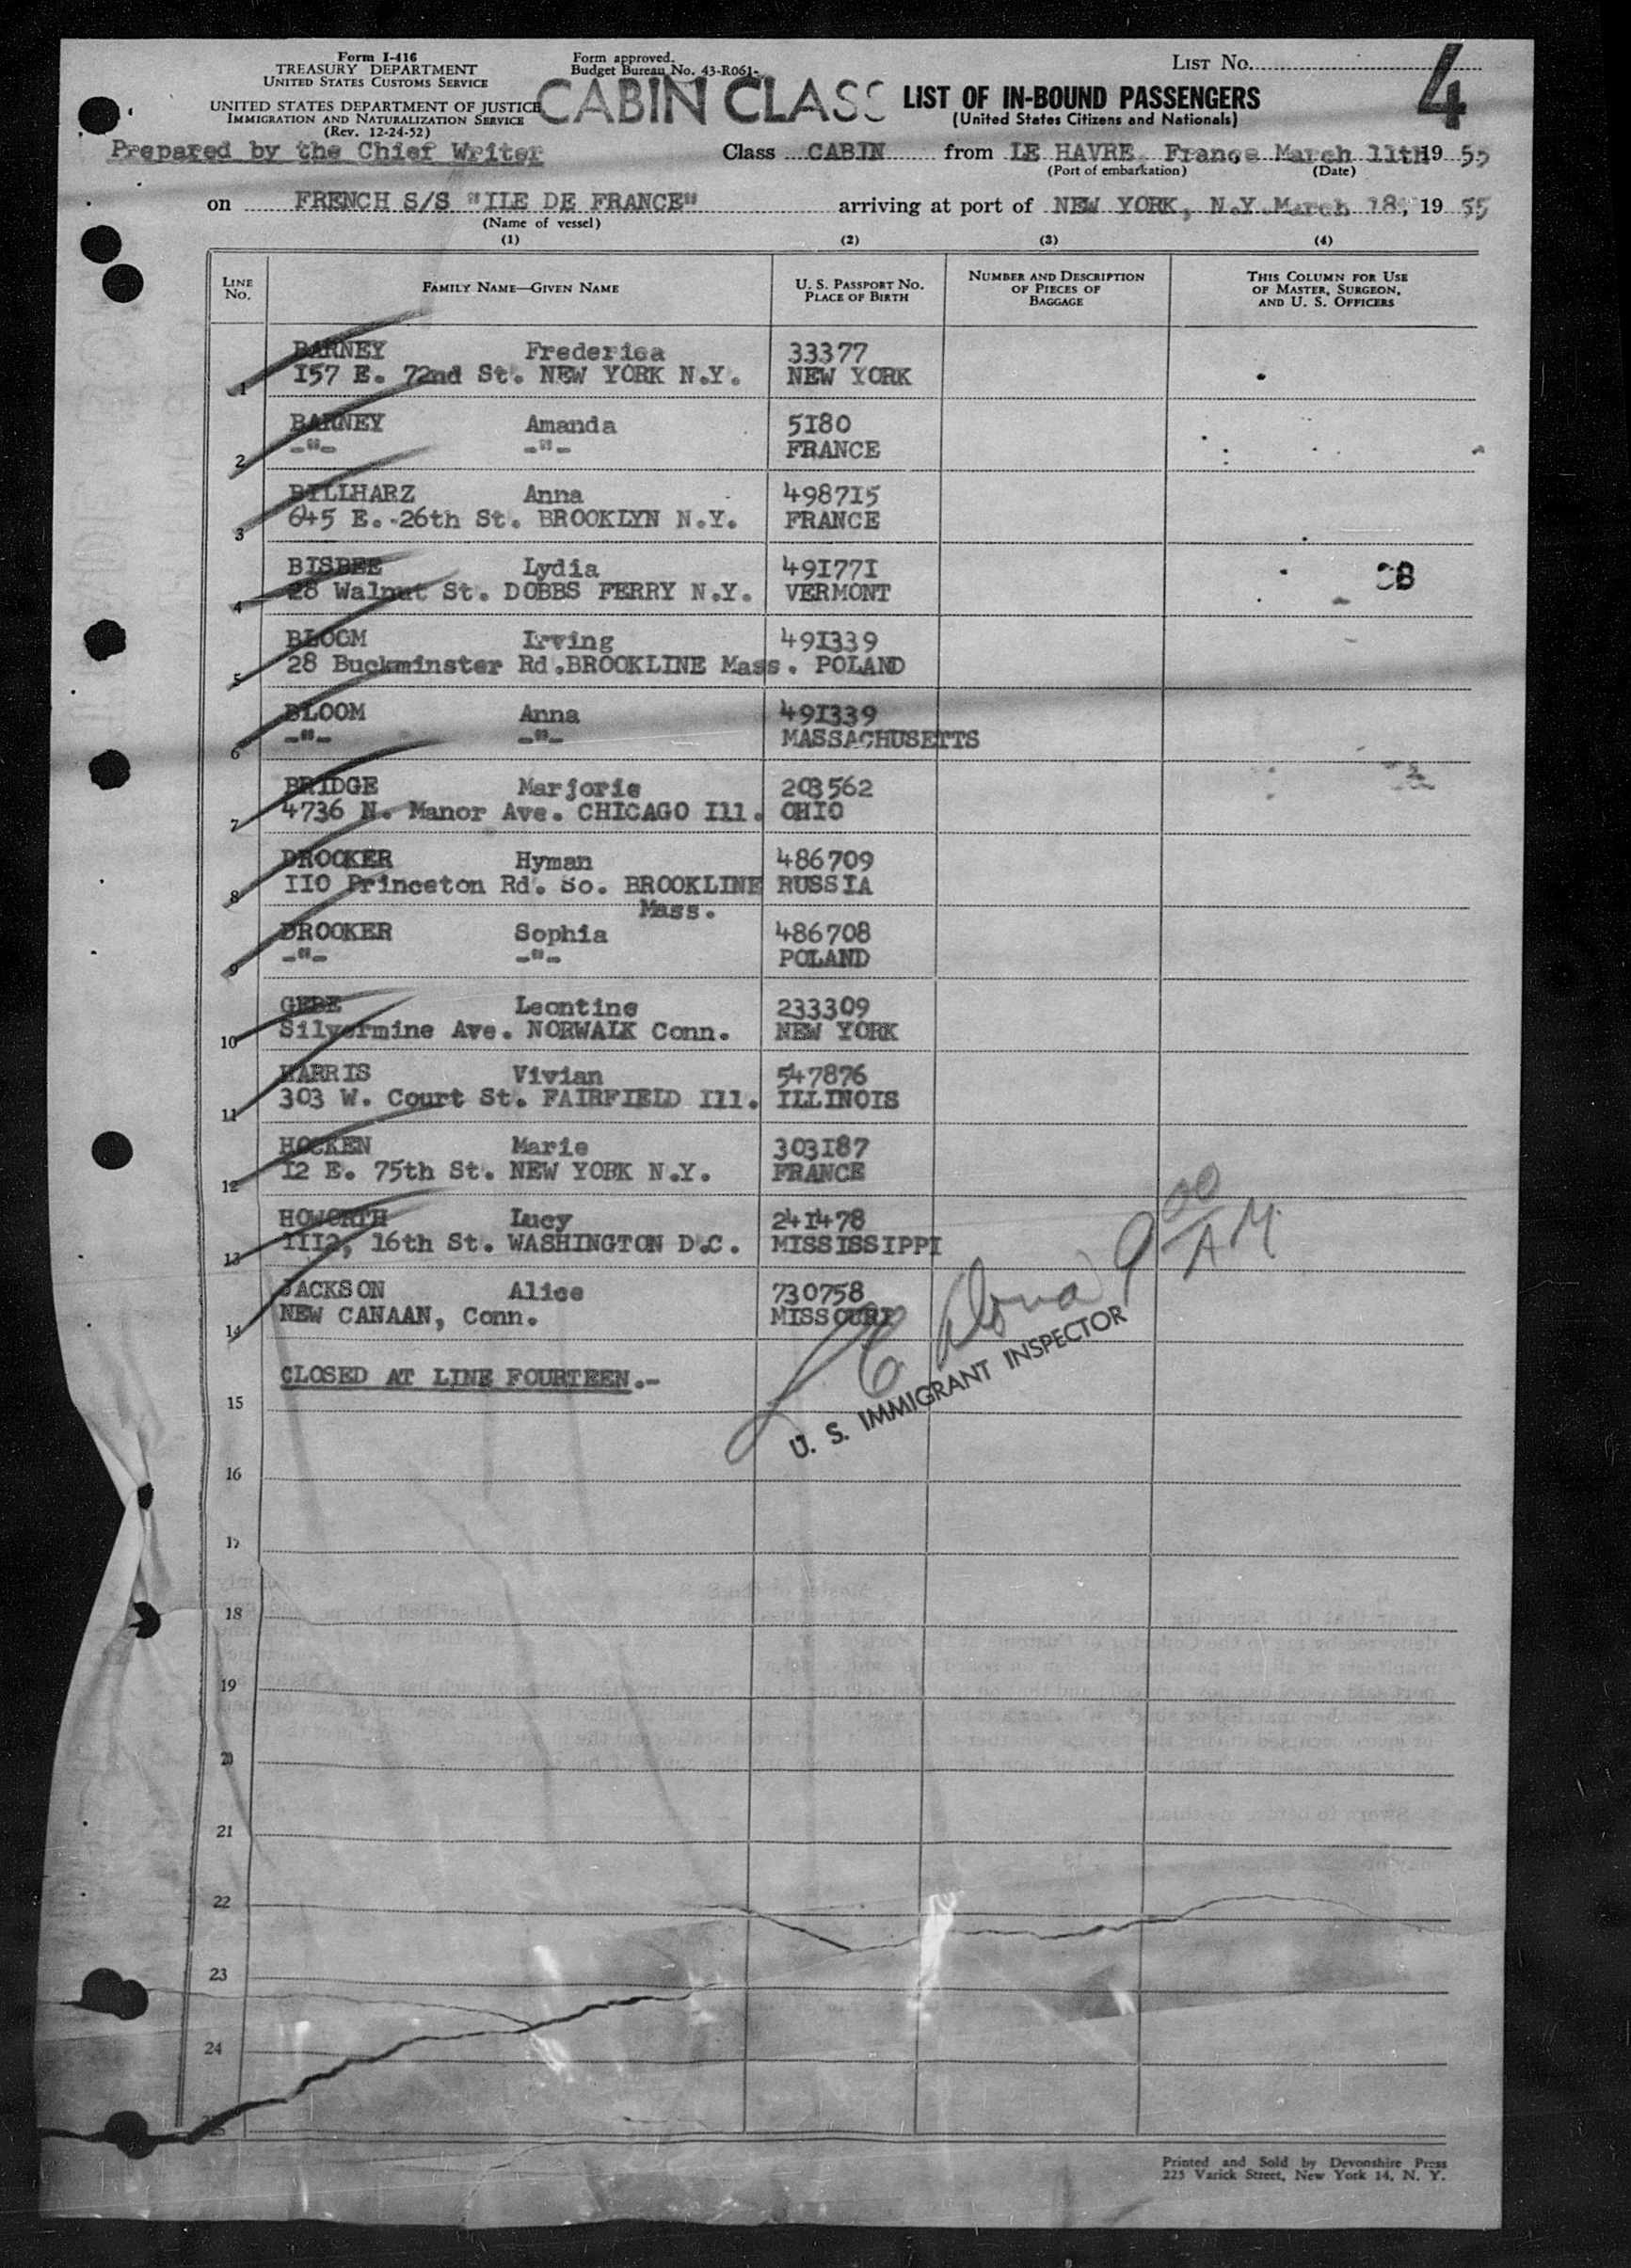 Form I-416
TREASURY DEPARTMENT
UNITED STATES CUSTOMS SERVICE
UNITED STATES DEPARTMENT OF JUSTICE
IMMIGRATION AND NATURALIZATION SERVICE
(Rev. 12-24-52)
Form approved.
Budget Bureau No. 43-R061-
CABIN CLASS
LIST OF IN-BOUND PASSENGERS
(United States Citizens and Nationals)
LIST No.
4
Prepared by the Chief Writer
Class CABIN from LE HAVRE, France March 11th 19 55
(Port of embarkation) (Date)
on FRENCH S/S "ILE DE FRANCE" arriving at port of NEW YORK, N.Y. March 18, 19 55
(Name of vessel)
(1) (2) (3) (4)
LINE No. FAMILY NAME—GIVEN NAME U. S. PASSPORT NO. PLACE OF BIRTH NUMBER AND DESCRIPTION OF PIECES OF BAGGAGE THIS COLUMN FOR USE OF MASTER, SURGEON, AND U. S. OFFICERS
BARNEY Frederica 33377
1 157 E. 72nd St. NEW YORK N.Y. NEW YORK
BARNEY Amanda 5180
2 -"- -"- FRANCE
BILLHARZ Anna 498715
3 645 E. 26th St. BROOKLYN N.Y. FRANCE
BISBEE Lydia 491771
4 28 Walnut St. DOBBS FERRY N.Y. VERMONT
BLOOM Irving 491339
5 28 Buckminster Rd.BROOKLINE Mass. POLAND
BLOOM Anna 491339
6 -"- -"- MASSACHUSETTS
BRIDGE Marjorie 203562
7 4736 N. Manor Ave. CHICAGO Ill. OHIO
DROOKER Hyman 486709
8 110 Princeton Rd. So. BROOKLINE RUSSIA
Mass.
DROOKER Sophia 486708
9 -"- -"- POLAND
GEBE Leontine 233309
10 Silvermine Ave. NORWALK Conn. NEW YORK
HARRIS Vivian 547876
11 303 W. Court St. FAIRFIELD Ill. ILLINOIS
HOCKEN Marie 303187
12 12 E. 75th St. NEW YORK N.Y. FRANCE
HOWORTH Lucy 241478
13 1112, 16th St. WASHINGTON D.C. MISSISSIPPI
JACKSON Alice 730758
14 NEW CANAAN, Conn. MISSOURI
9 00 AM
U. S. IMMIGRANT INSPECTOR
CLOSED AT LINE FOURTEEN.-
15
16
17
18
19
20
21
22
23
24
Printed and Sold by Devonshire Press
225 Varick Street, New York 14, N. Y.